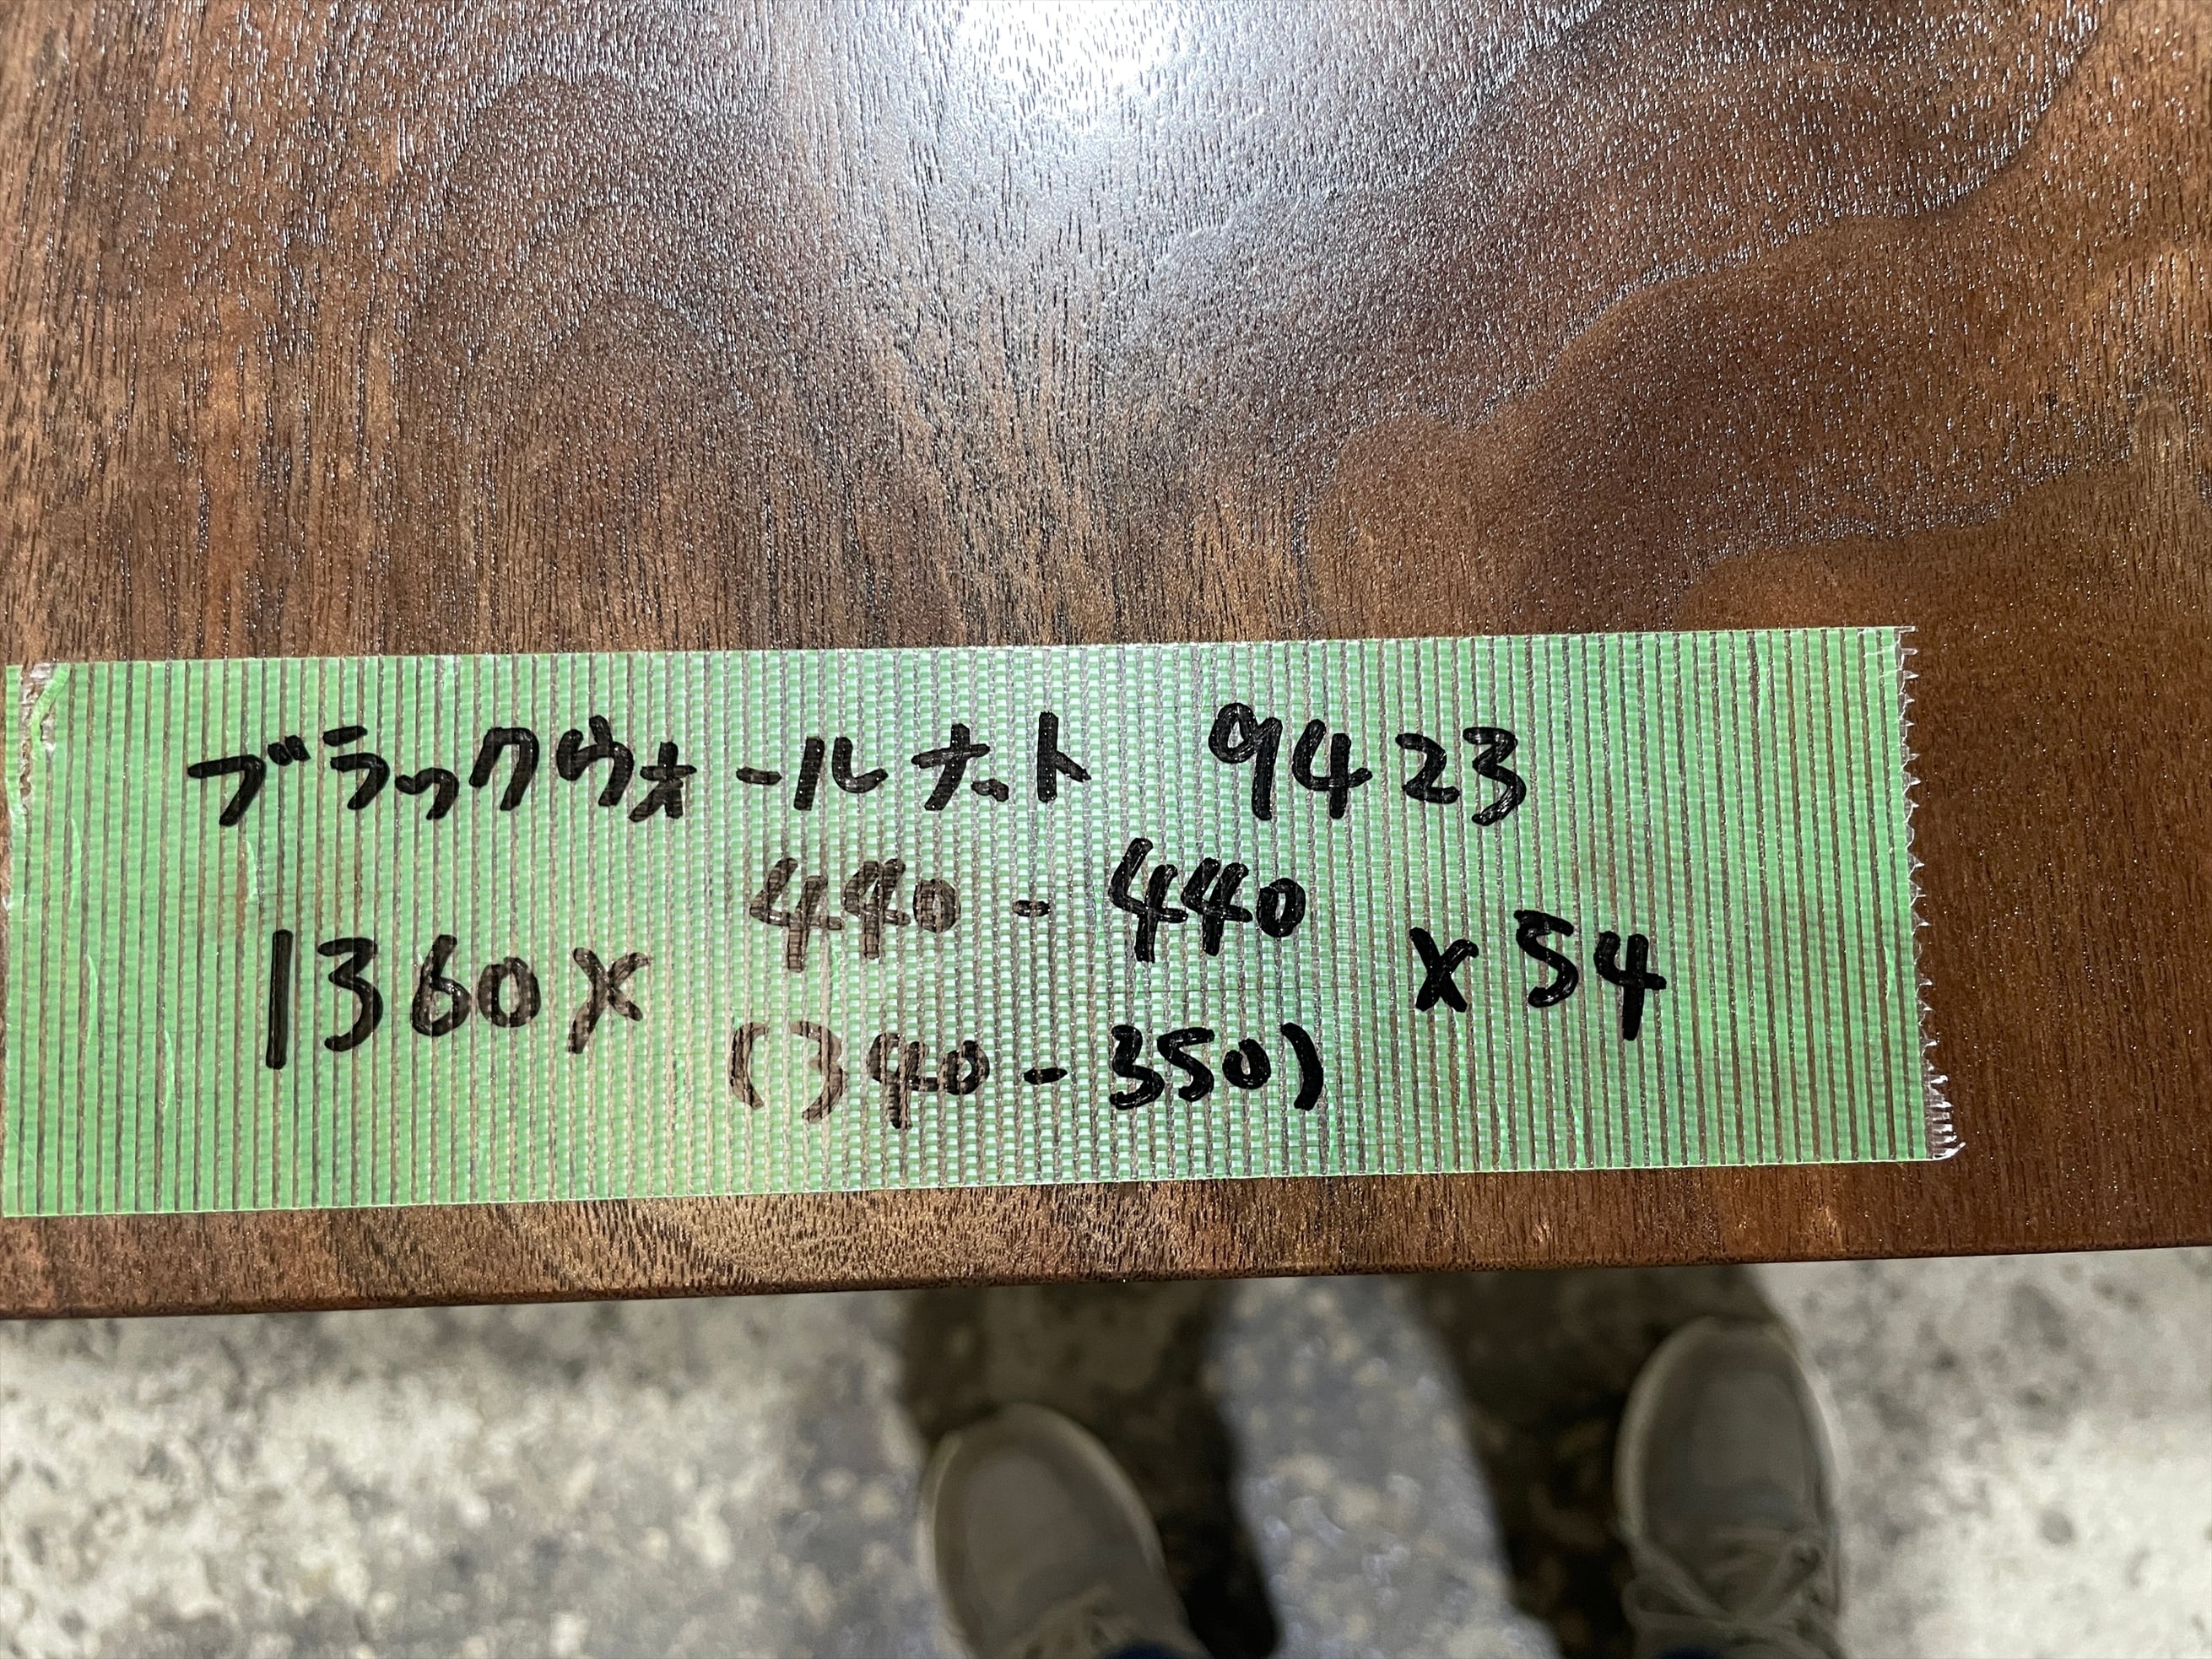 ブラックウォールナット 9423
440 - 440
1360 x x 54
(340 - 350)